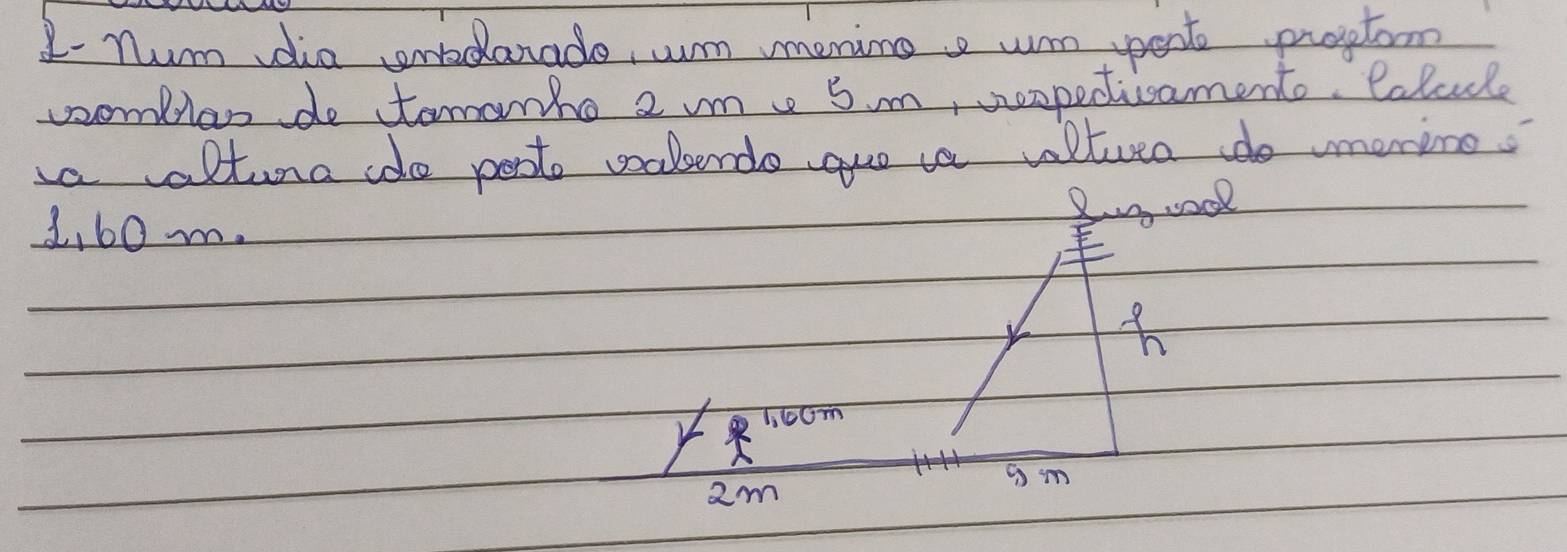 1- Num dia ensolarado, um menino e um poste projetam
sombras de tamanho 2 m e 5 m, respectivamente. Calcule
a altura do poste sabendo que a altura do menino é
1,60 m.
luz sol
h
1,60m
2m
5 m